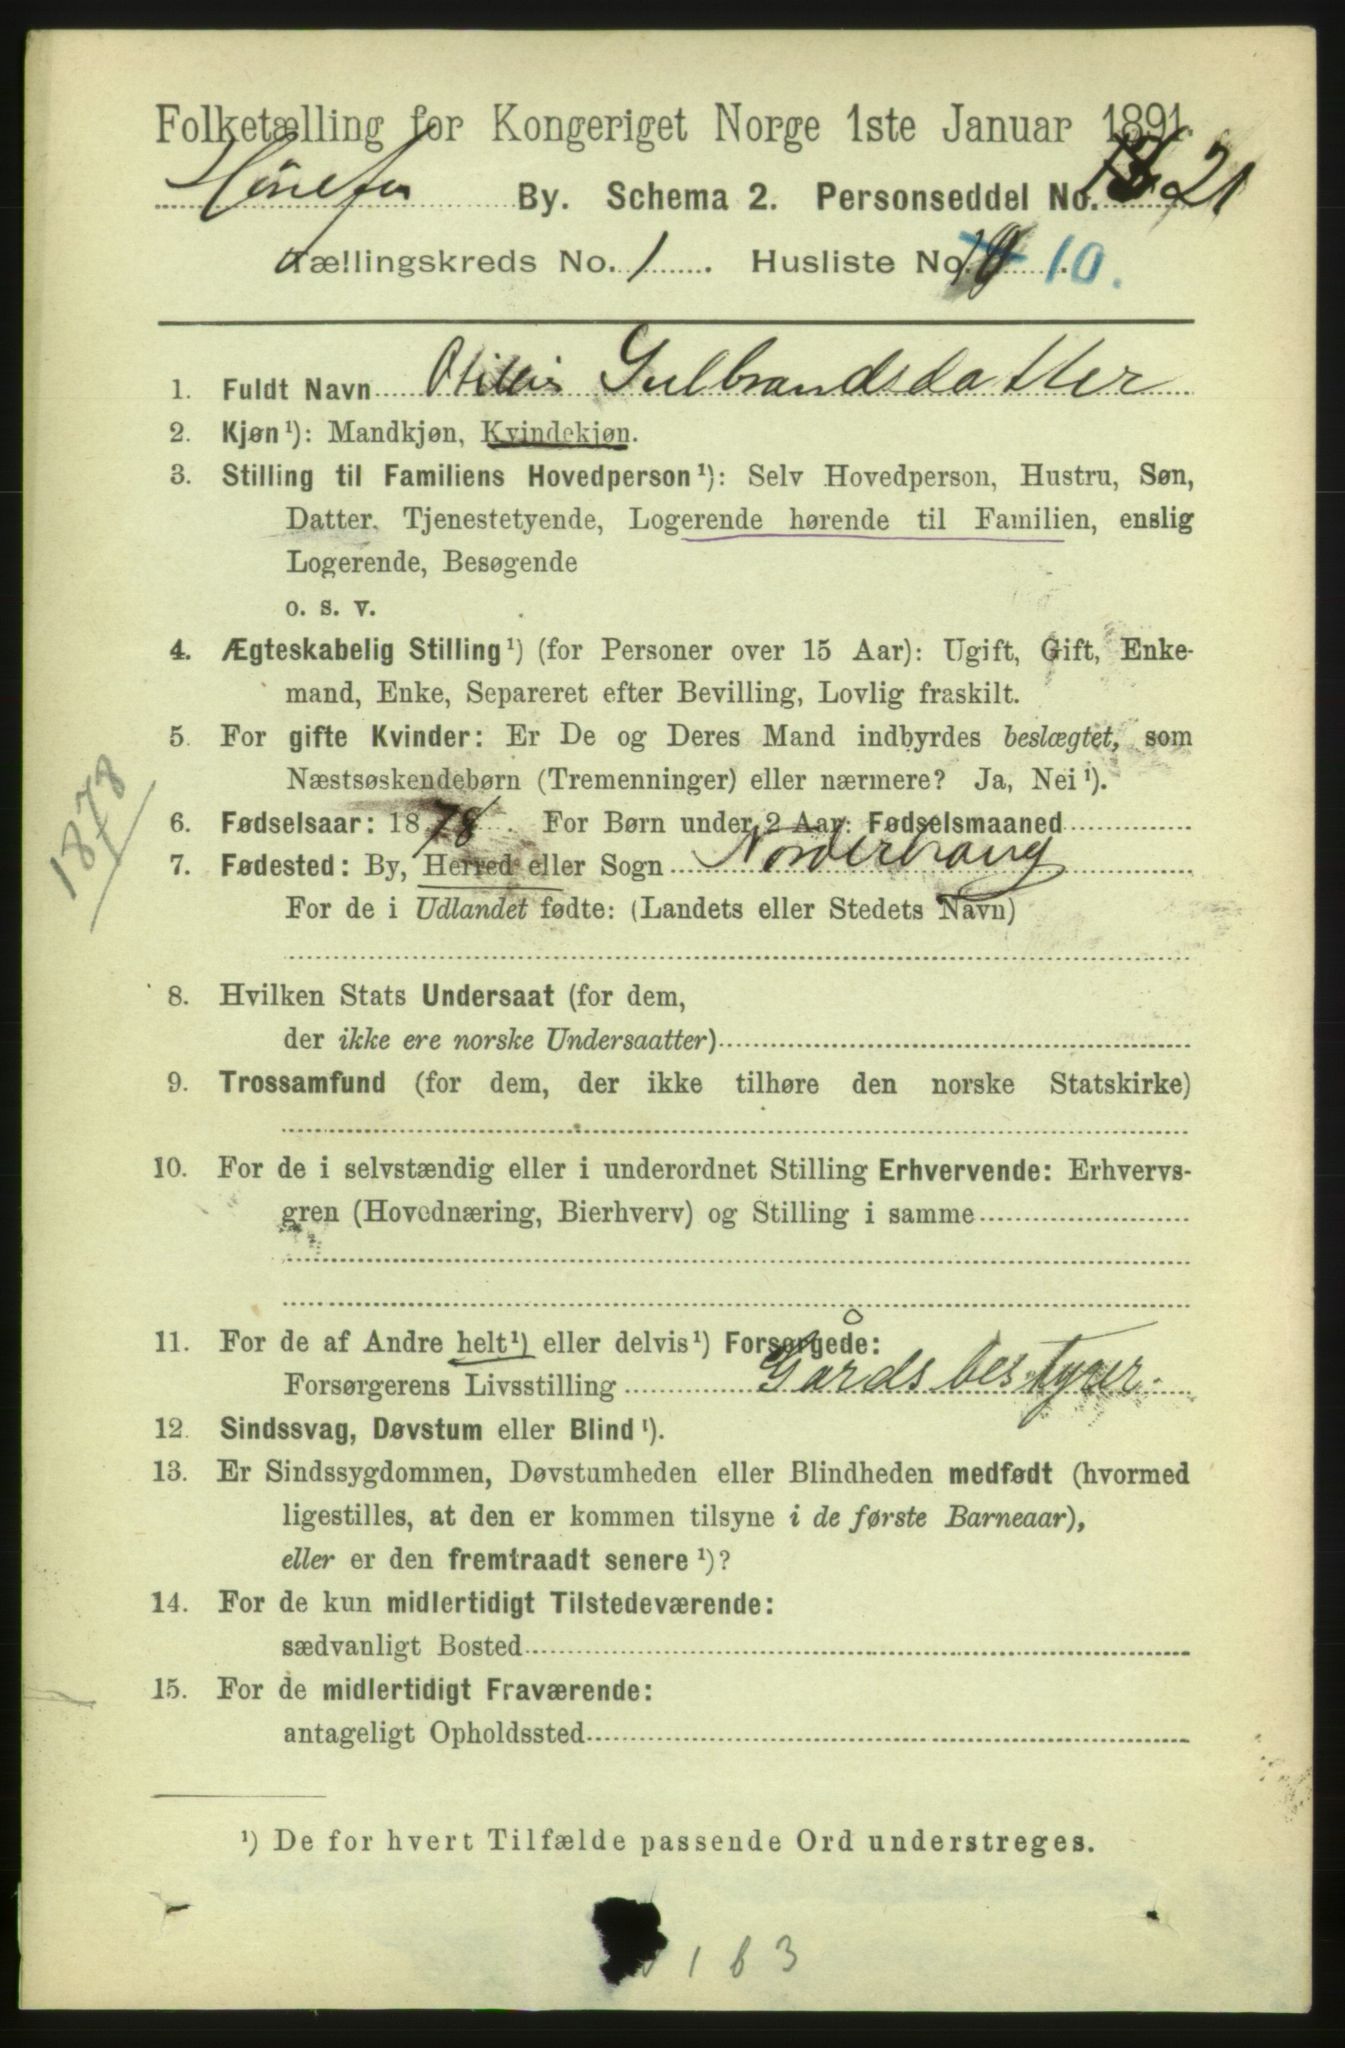 Folketælling for Kongeriget Norge 1ste Januar 1891.
Hønefos By. Schema 2. Personseddel No. 21
Tællingskreds No. 1. Husliste No. 10.
1. Fuldt Navn Otillie Gulbrandsdatter
2. Kjøn ¹): Mandkjøn, Kvindekjøn.
3. Stilling til Familiens Hovedperson ¹): Selv Hovedperson, Hustru, Søn,
Datter, Tjenestetyende, Logerende hørende til Familien, enslig
Logerende, Besøgende
o. s. v.
4. Ægteskabelig Stilling ¹) (for Personer over 15 Aar): Ugift, Gift, Enke-
mand, Enke, Separeret efter Bevilling, Lovlig fraskilt.
5. For gifte Kvinder: Er De og Deres Mand indbyrdes beslægtet, som
Næstsøskendebørn (Tremenninger) eller nærmere? Ja, Nei ¹).
1878
6. Fødselsaar: 1878. For Børn under 2 Aar: Fødselsmaaned
7. Fødested: By, Herred eller Sogn Norderhaug
For de i Udlandet fødte: (Landets eller Stedets Navn)
8. Hvilken Stats Undersaat (for dem,
der ikke ere norske Undersaatter)
9. Trossamfund (for dem, der ikke tilhøre den norske Statskirke)
10. For de i selvstændig eller i underordnet Stilling Erhvervende: Erhvervs-
gren (Hovednæring, Bierhverv) og Stilling i samme
11. For de af Andre helt ¹) eller delvis ¹) Forsørgede:
Forsørgerens Livsstilling Gårdsbestyrer.
12. Sindssvag, Døvstum eller Blind ¹).
13. Er Sindssygdommen, Døvstumheden eller Blindheden medfødt (hvormed
ligestilles, at den er kommen tilsyne i de første Barneaar),
eller er den fremtraadt senere ¹)?
14. For de kun midlertidigt Tilstedeværende:
sædvanligt Bosted
15. For de midlertidigt Fraværende:
antageligt Opholdssted
¹) De for hvert Tilfælde passende Ord understreges.
163